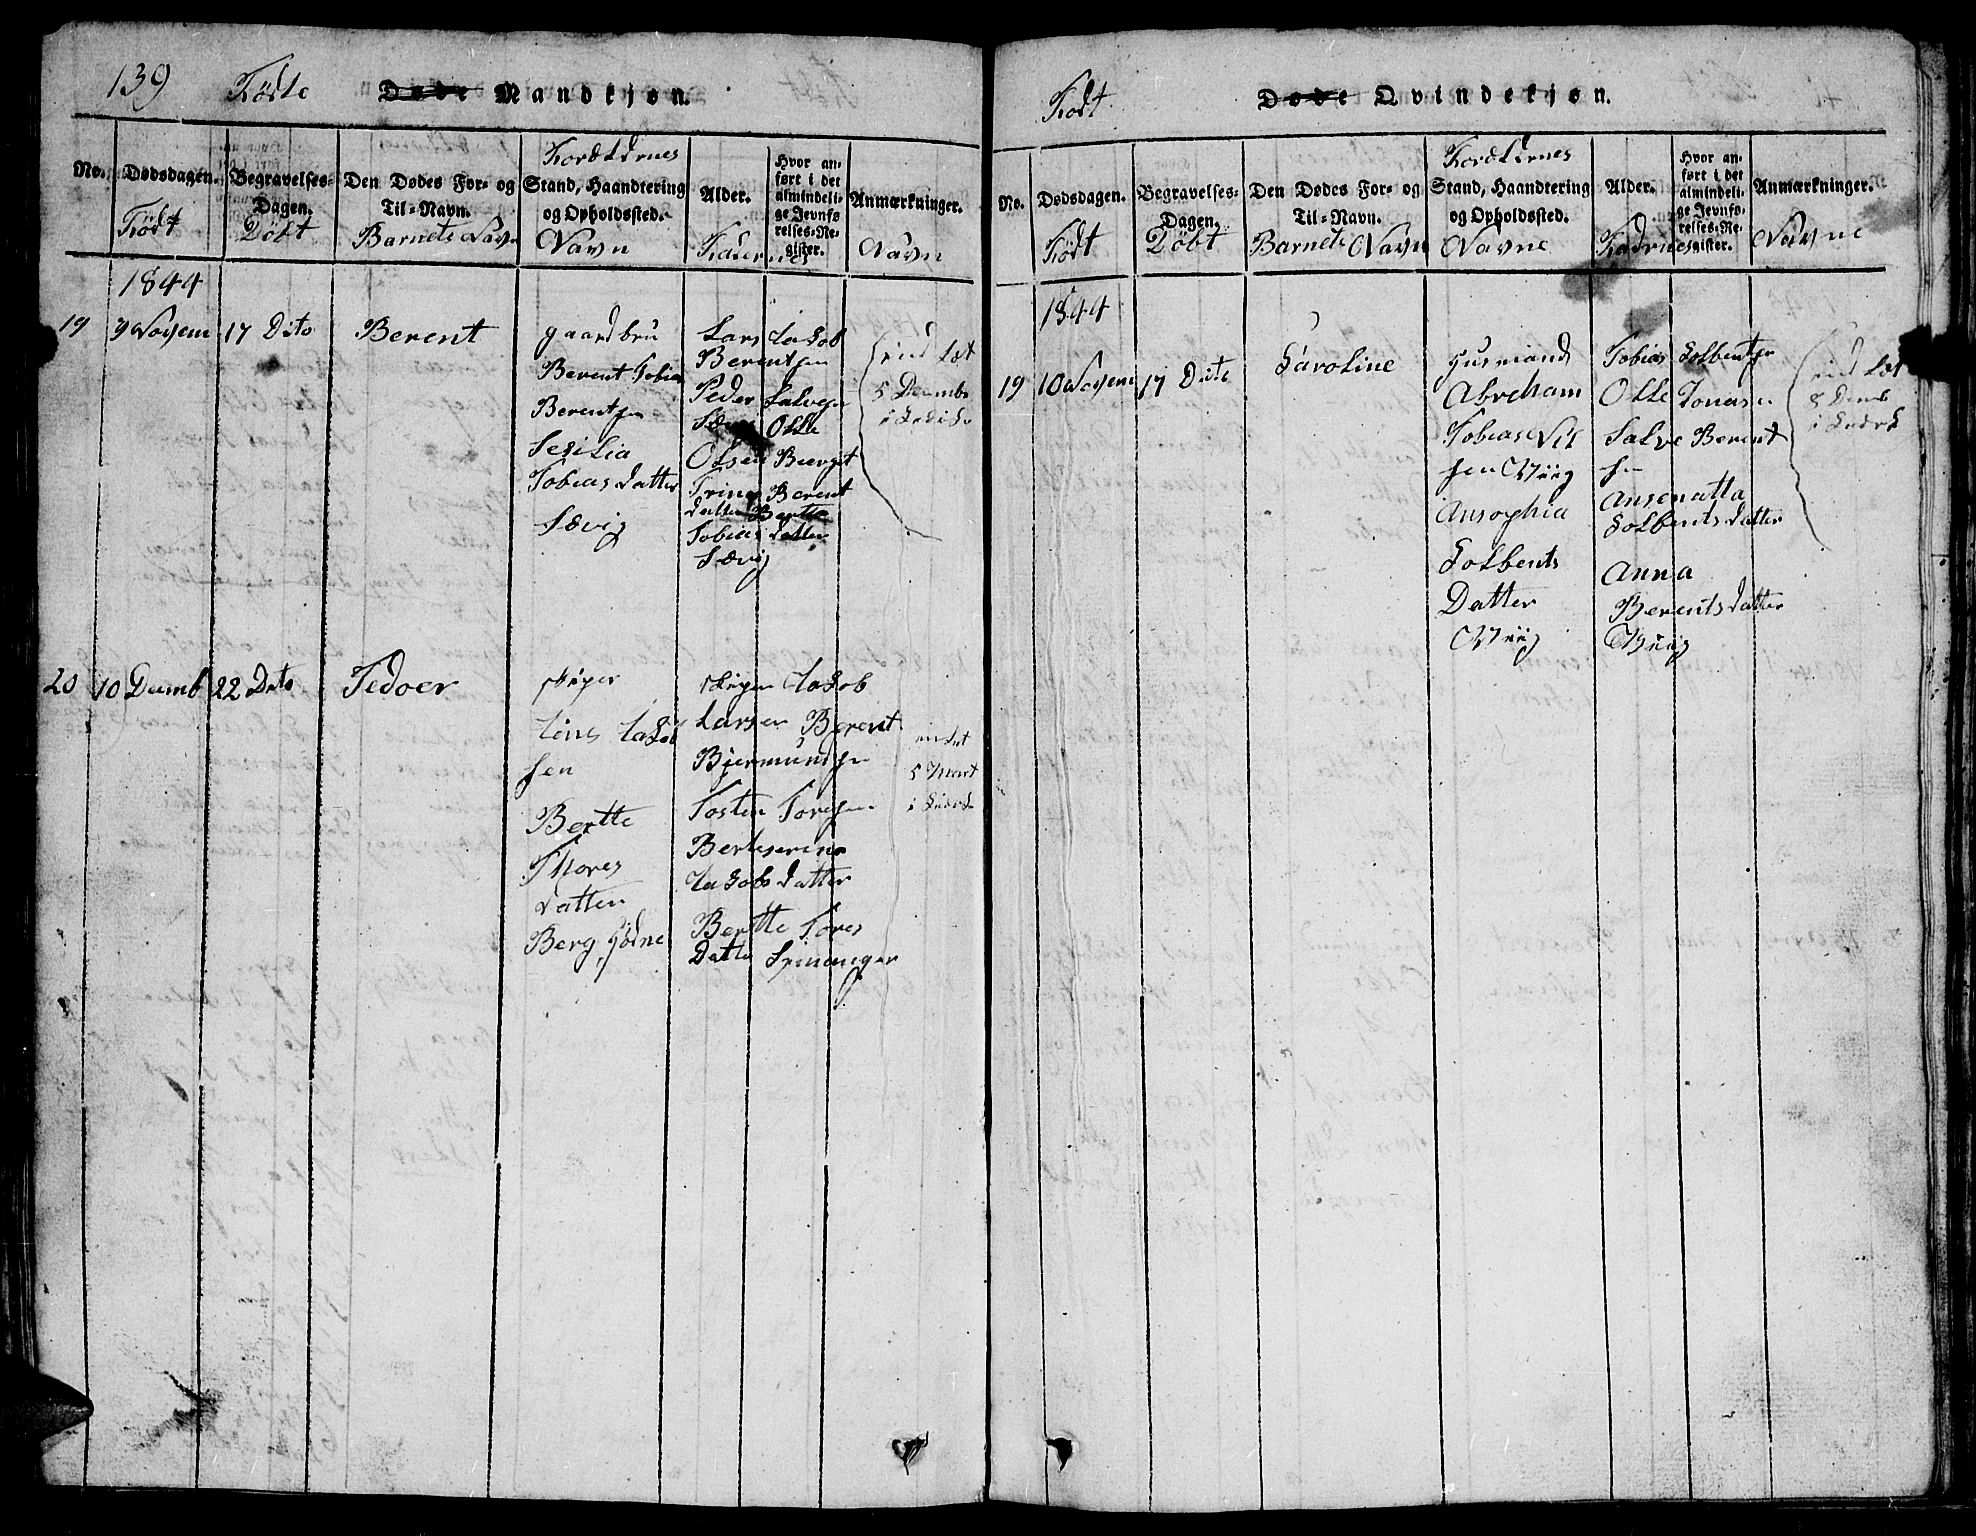 139
Födte
Døde Mandkjøn.
No.
Dødsdagen.
Födt
Begravelses-
Dagen.
Döbt
Den Dødes For- og
Til-Navn.
Barnets Navn
Forældrnes
Stand, Haandtering
og Opholdssted.
Navn
Alder.
Hvor an-
ført i det
almindeli-
ge Jevnfø-
relses-Re-
gister.
Anmærkninger.
Navn
1844
19
9 Novem
17 Dito
Berent
gaardbru
Berent Tobias
Berentsen
Sesilia
Tobias datter
Sævig
Lars Jakob
Berentsen
Peder Salvesen
Olle
Olsen
Trine Berent
datter Bertte
Tobias datter
Sævig
ind Læt
20
10 Decemb
22 Dito
Tedoer
Jakob
sen
Bertte
Thores
datter
Berg
Jakob
Larsen Berent
Bjermundsen
Tosten Toresen
Berteserine
Jakobs datter
Bertte Tores
Datter
5 Mart
Födt
Døde Qvindekjøn.
No.
Dødsdagen.
Födt
Begravelses-
Dagen.
Döbt
Den Dødes For- og
Til-Navn.
Barnets Navn
Forældrnes
Stand, Haandtering
og Opholdssted.
Navne
Alder.
Fadrnes
Hvor an-
ført i det
almindeli-
ge Jevnfø-
relses-Re-
gister.
Anmærkninger.
Navne
1844
19
10 Novem
17 Dito
Caroline
Husmand
Abreham
Tobias
Ansophia
Kolbents
Datter
Tobias Kolbentsen
Olle Jonasen
Salve Berent
sen
Ansenatta
Kolbents datter
Anna
Berents datter
ind Læt